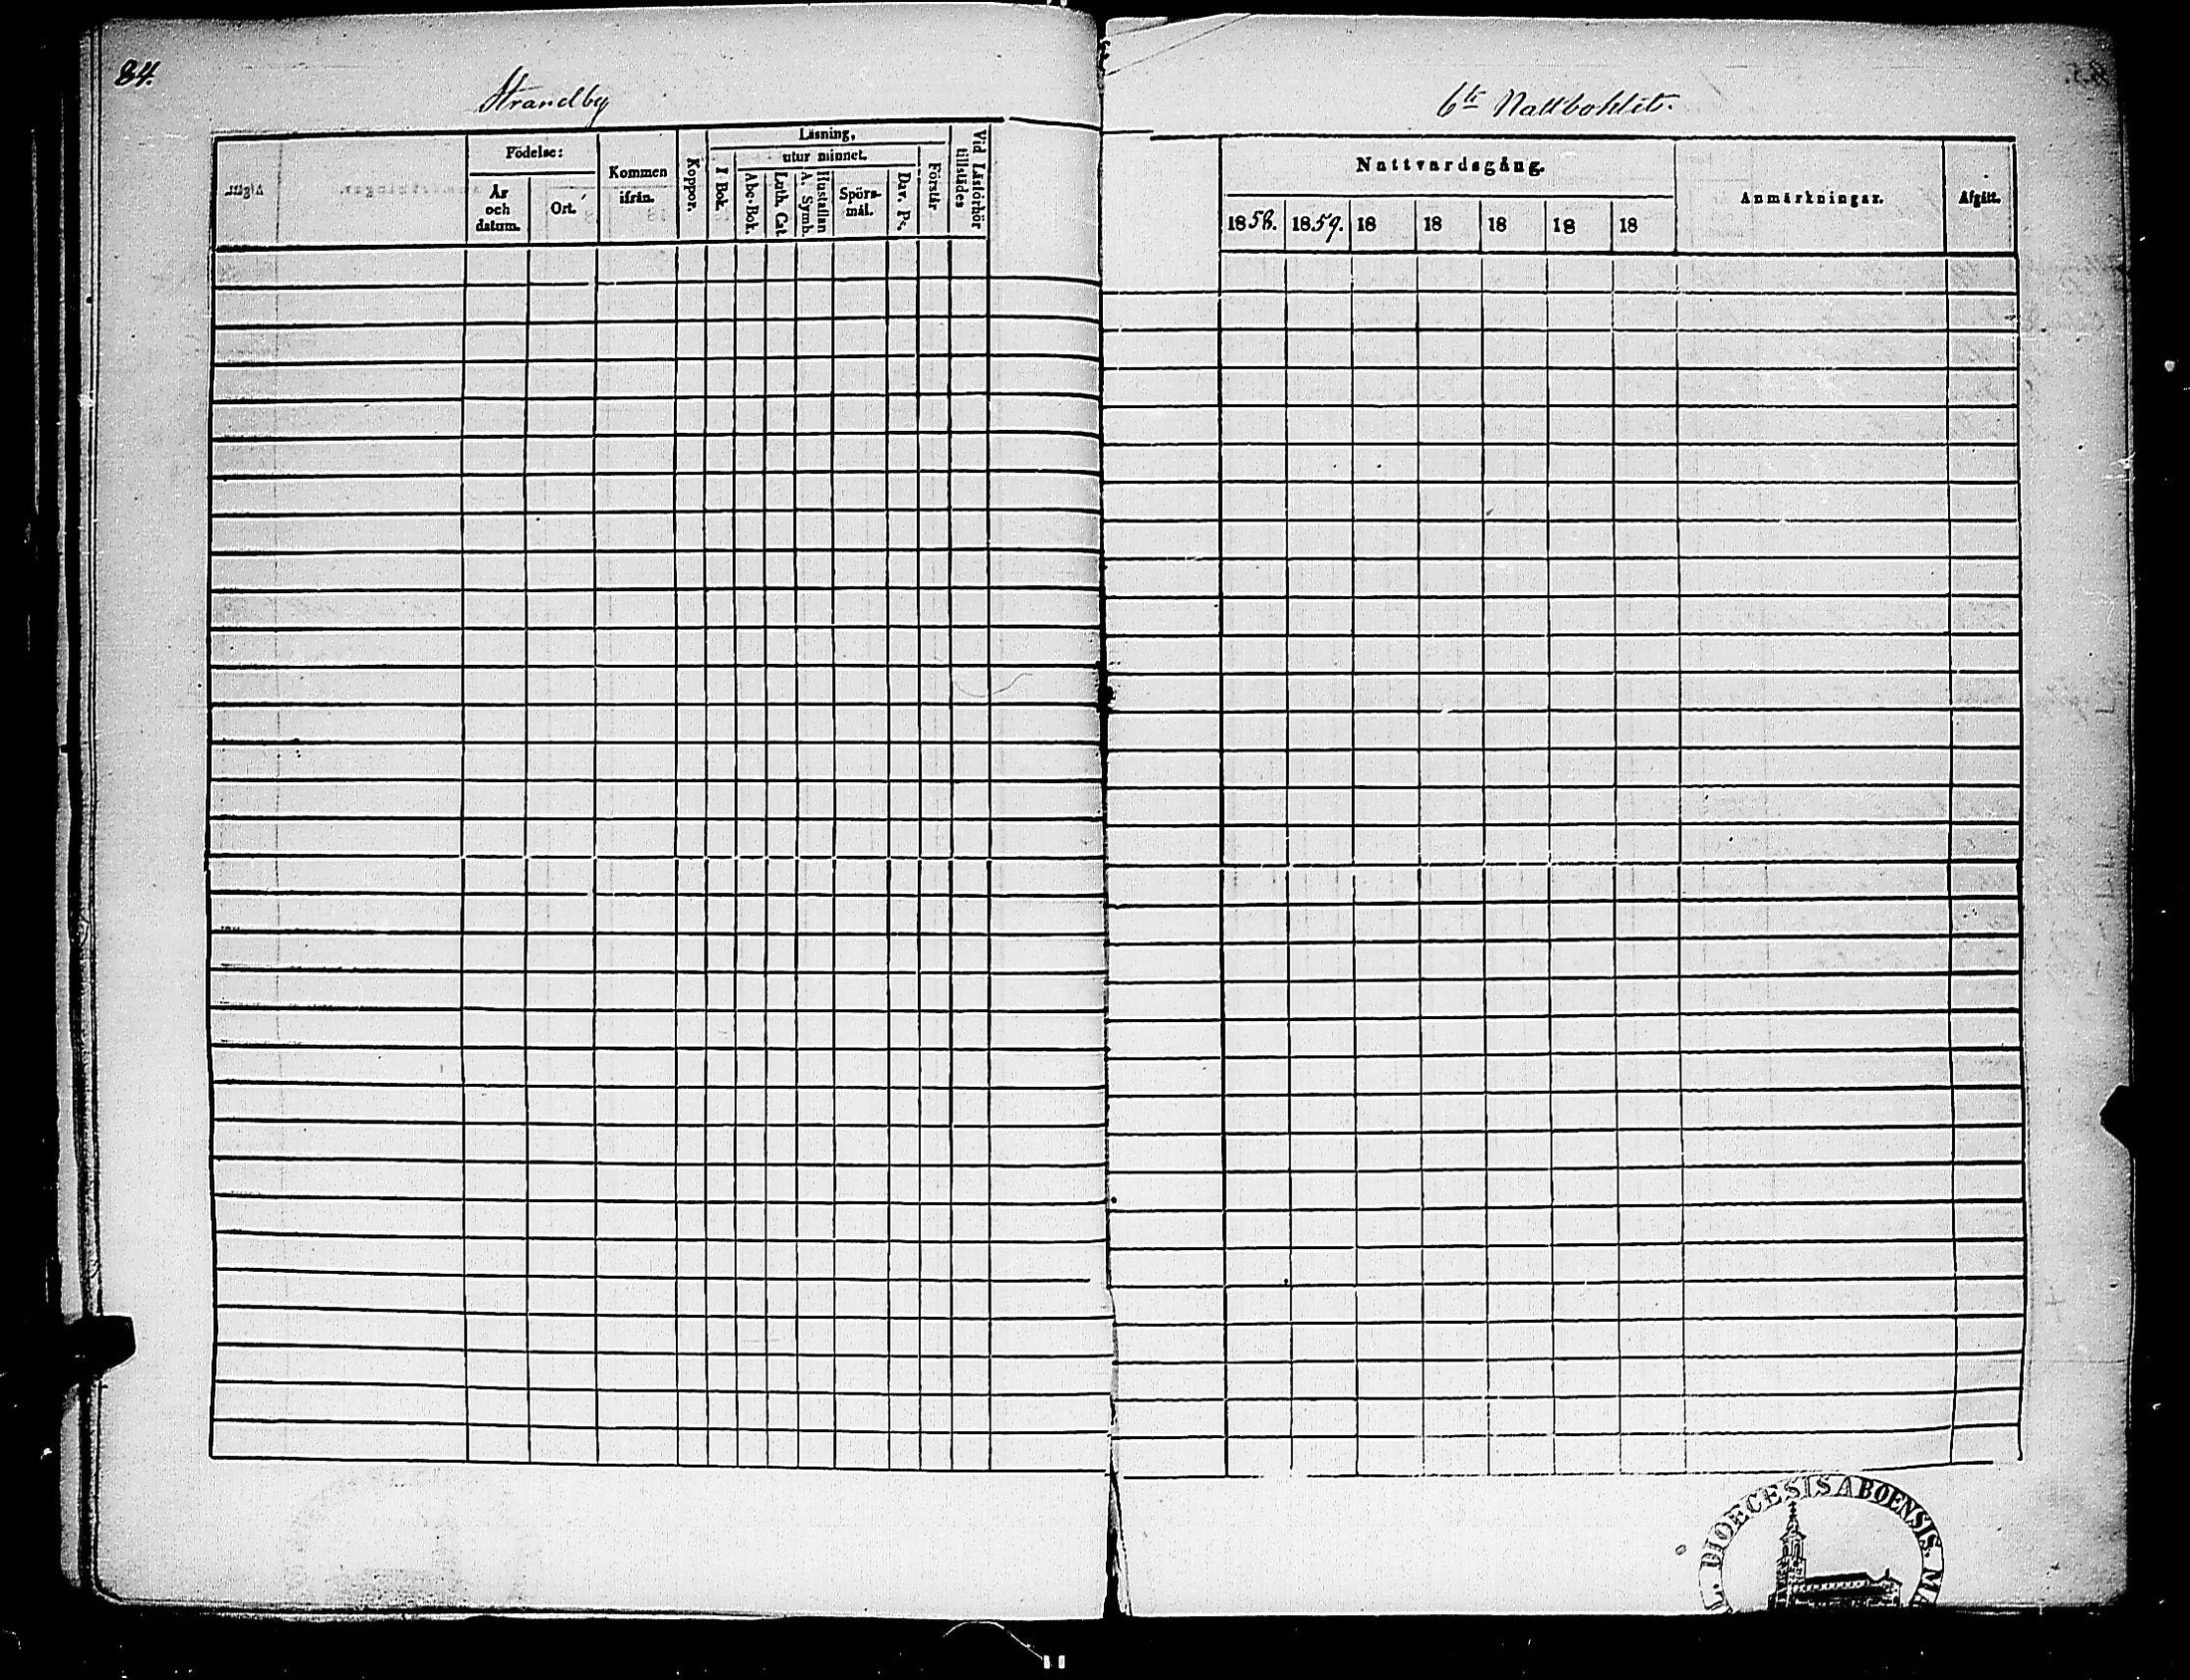 84.
Strandby
6te Nattboklit.
Födelse:
År och datum.
Ort.
Kommen ifrån.
Koppor.
Läsning,
utur minnet.
I Bok.
Abc-Bok.
Luth. Cat.
Hustaflan A. Symb.
Spörsmål.
Dav. Ps.
Förstår
Vid Läsförhör tillstädes
Nattvardsgång.
1858. 1859. 18 18 18 18 18
Anmärkningar.
Afgått.
L. DIOECESIS ABOENSIS. M